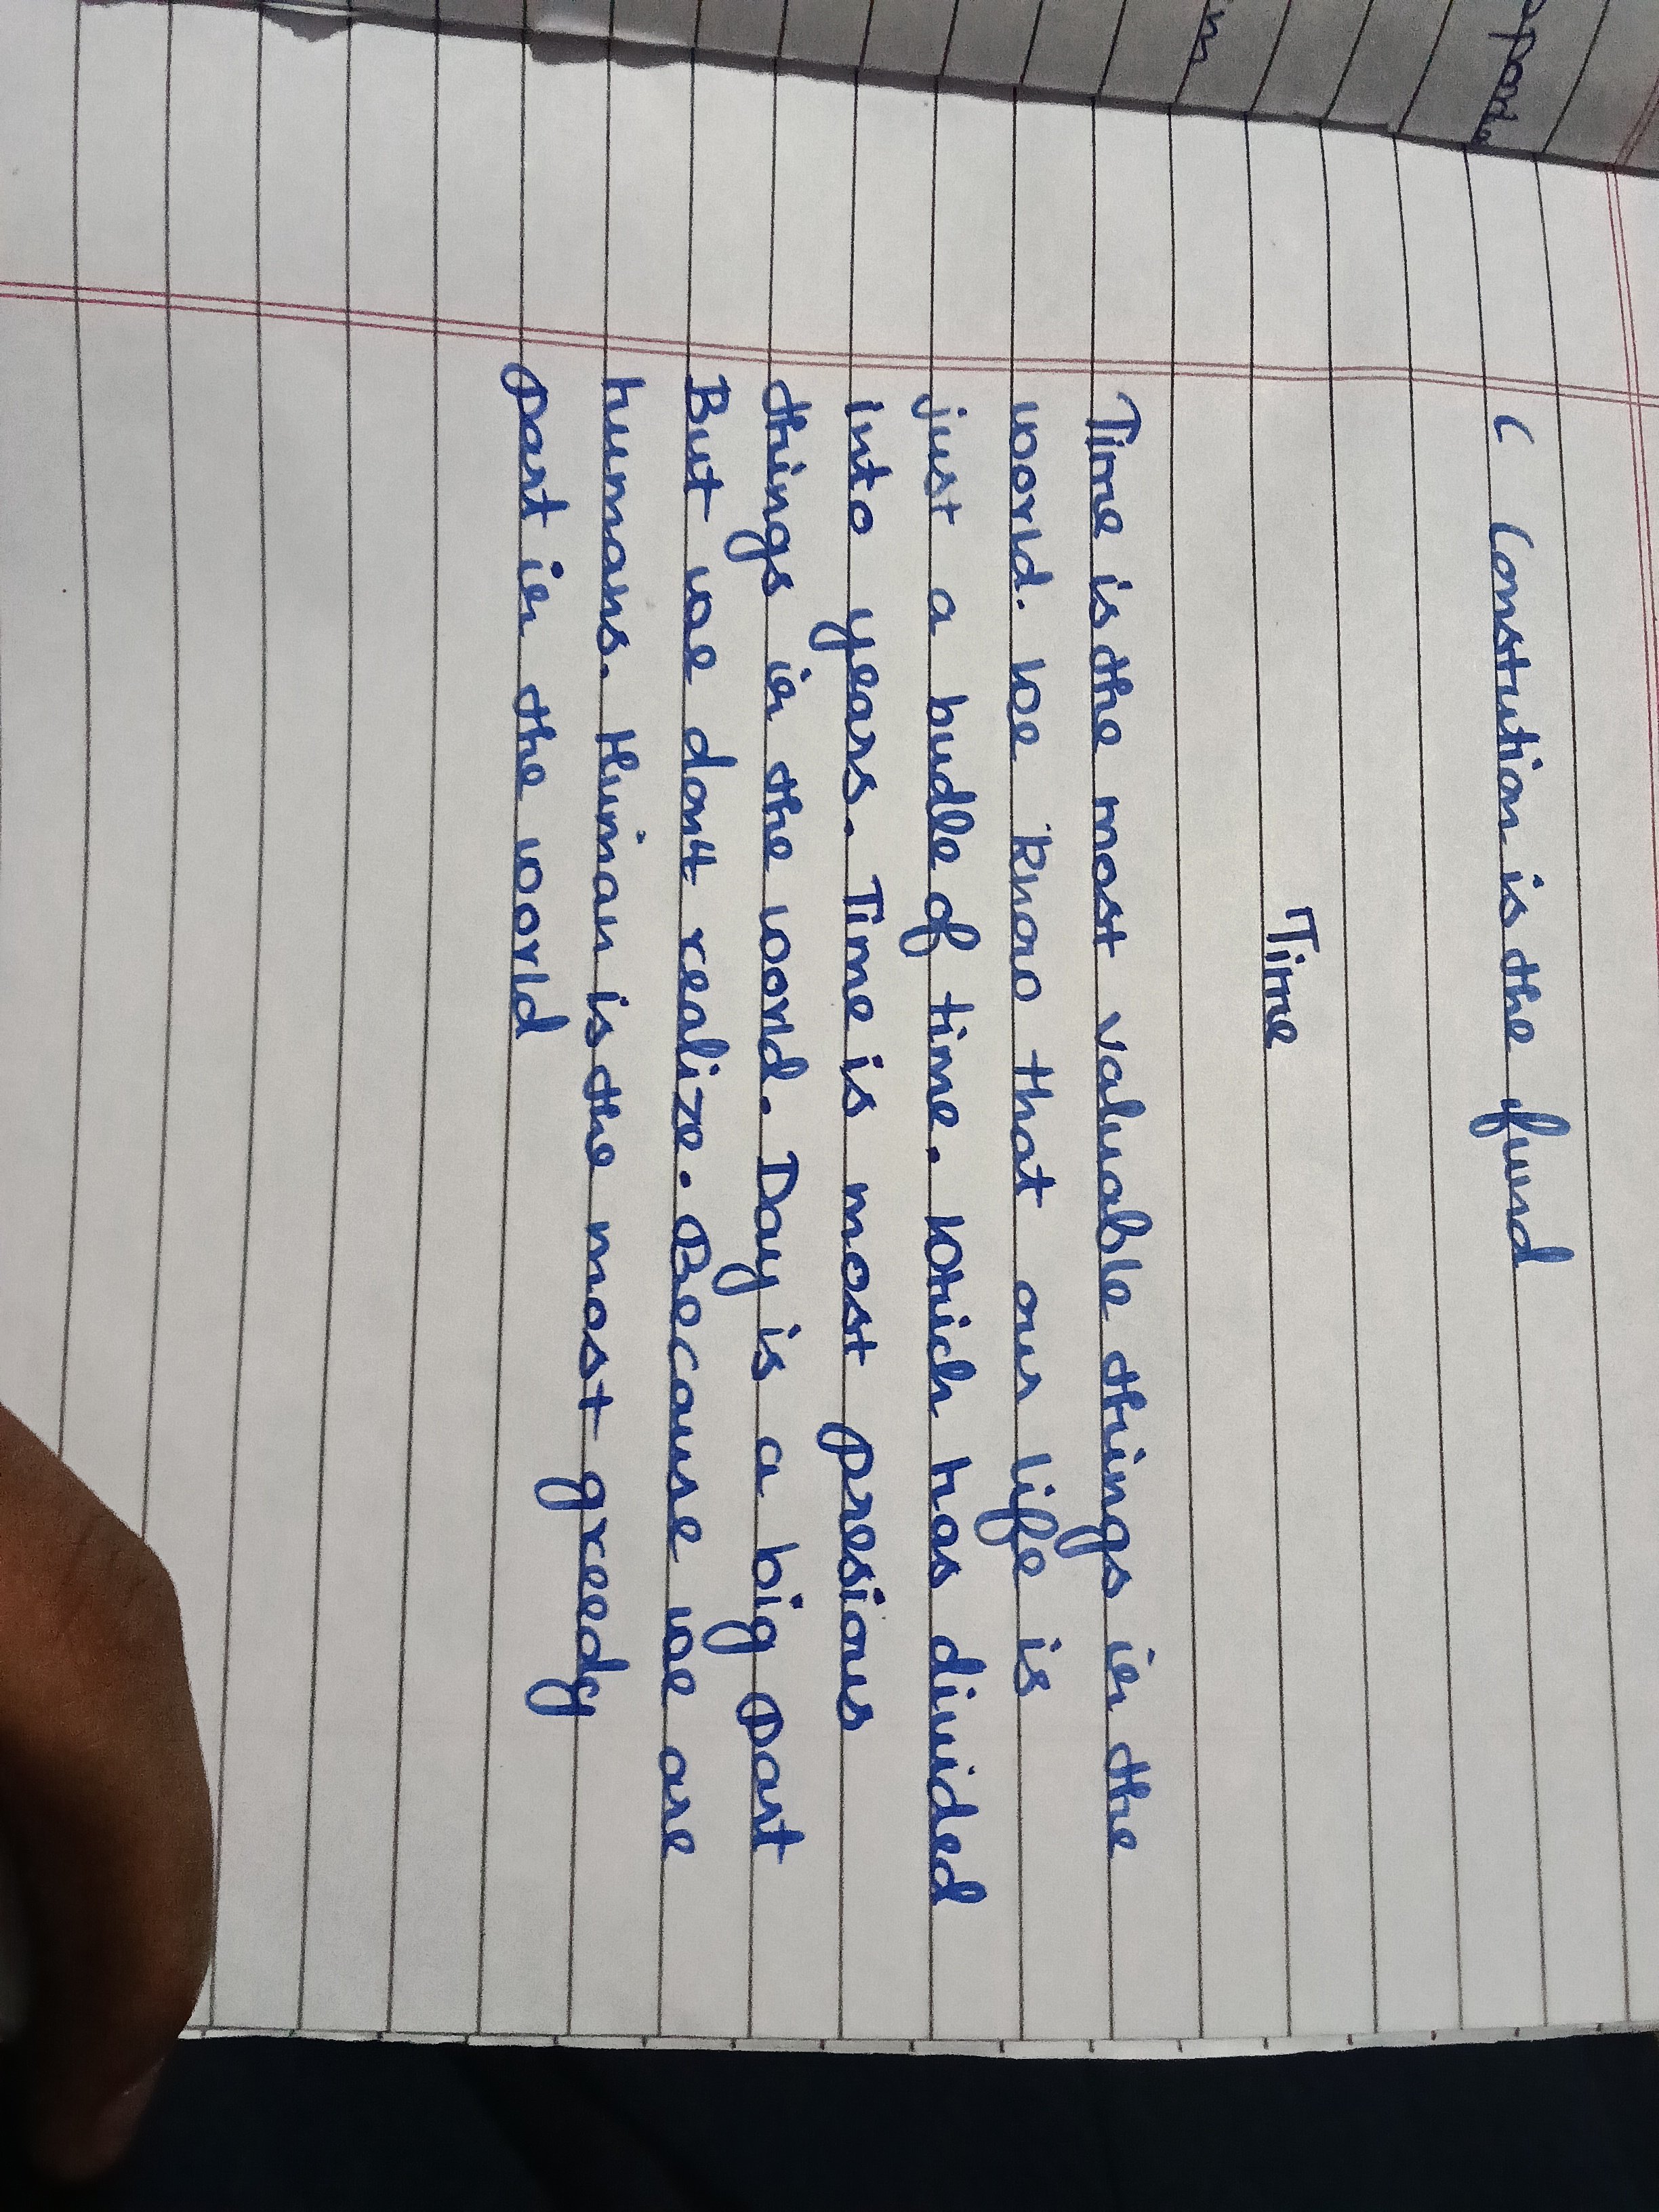 ( Constution is the fund
Time
Time is the most valuable things in the
world. We know that our life is
just a budle of time. Which has divided
into years. Time is most presious
things in the world. Day is a big part
But we don't realize. Because we are
humans. Human is the most greedy
part in the world